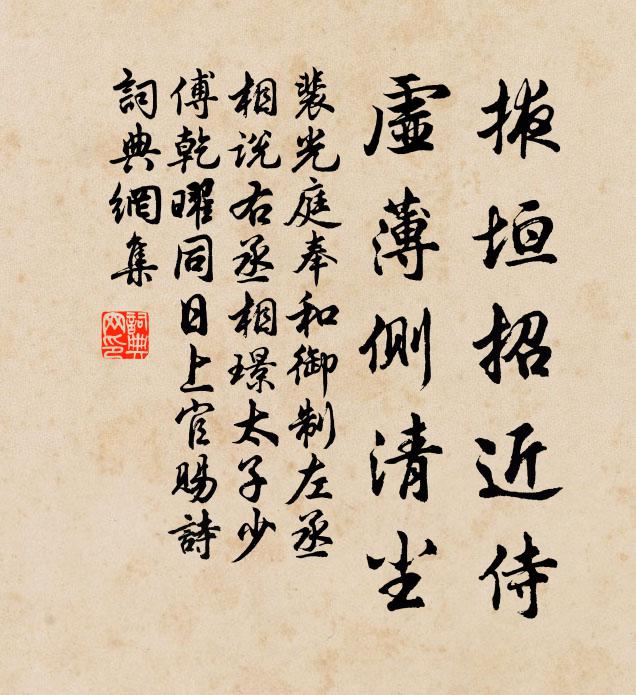 掖垣招近侍
虛薄側清塵
裴光庭奉和御制左丞
相说右丞相璟太子少
傅乾曜同日上官賜詩
詞典網集
詞典網印